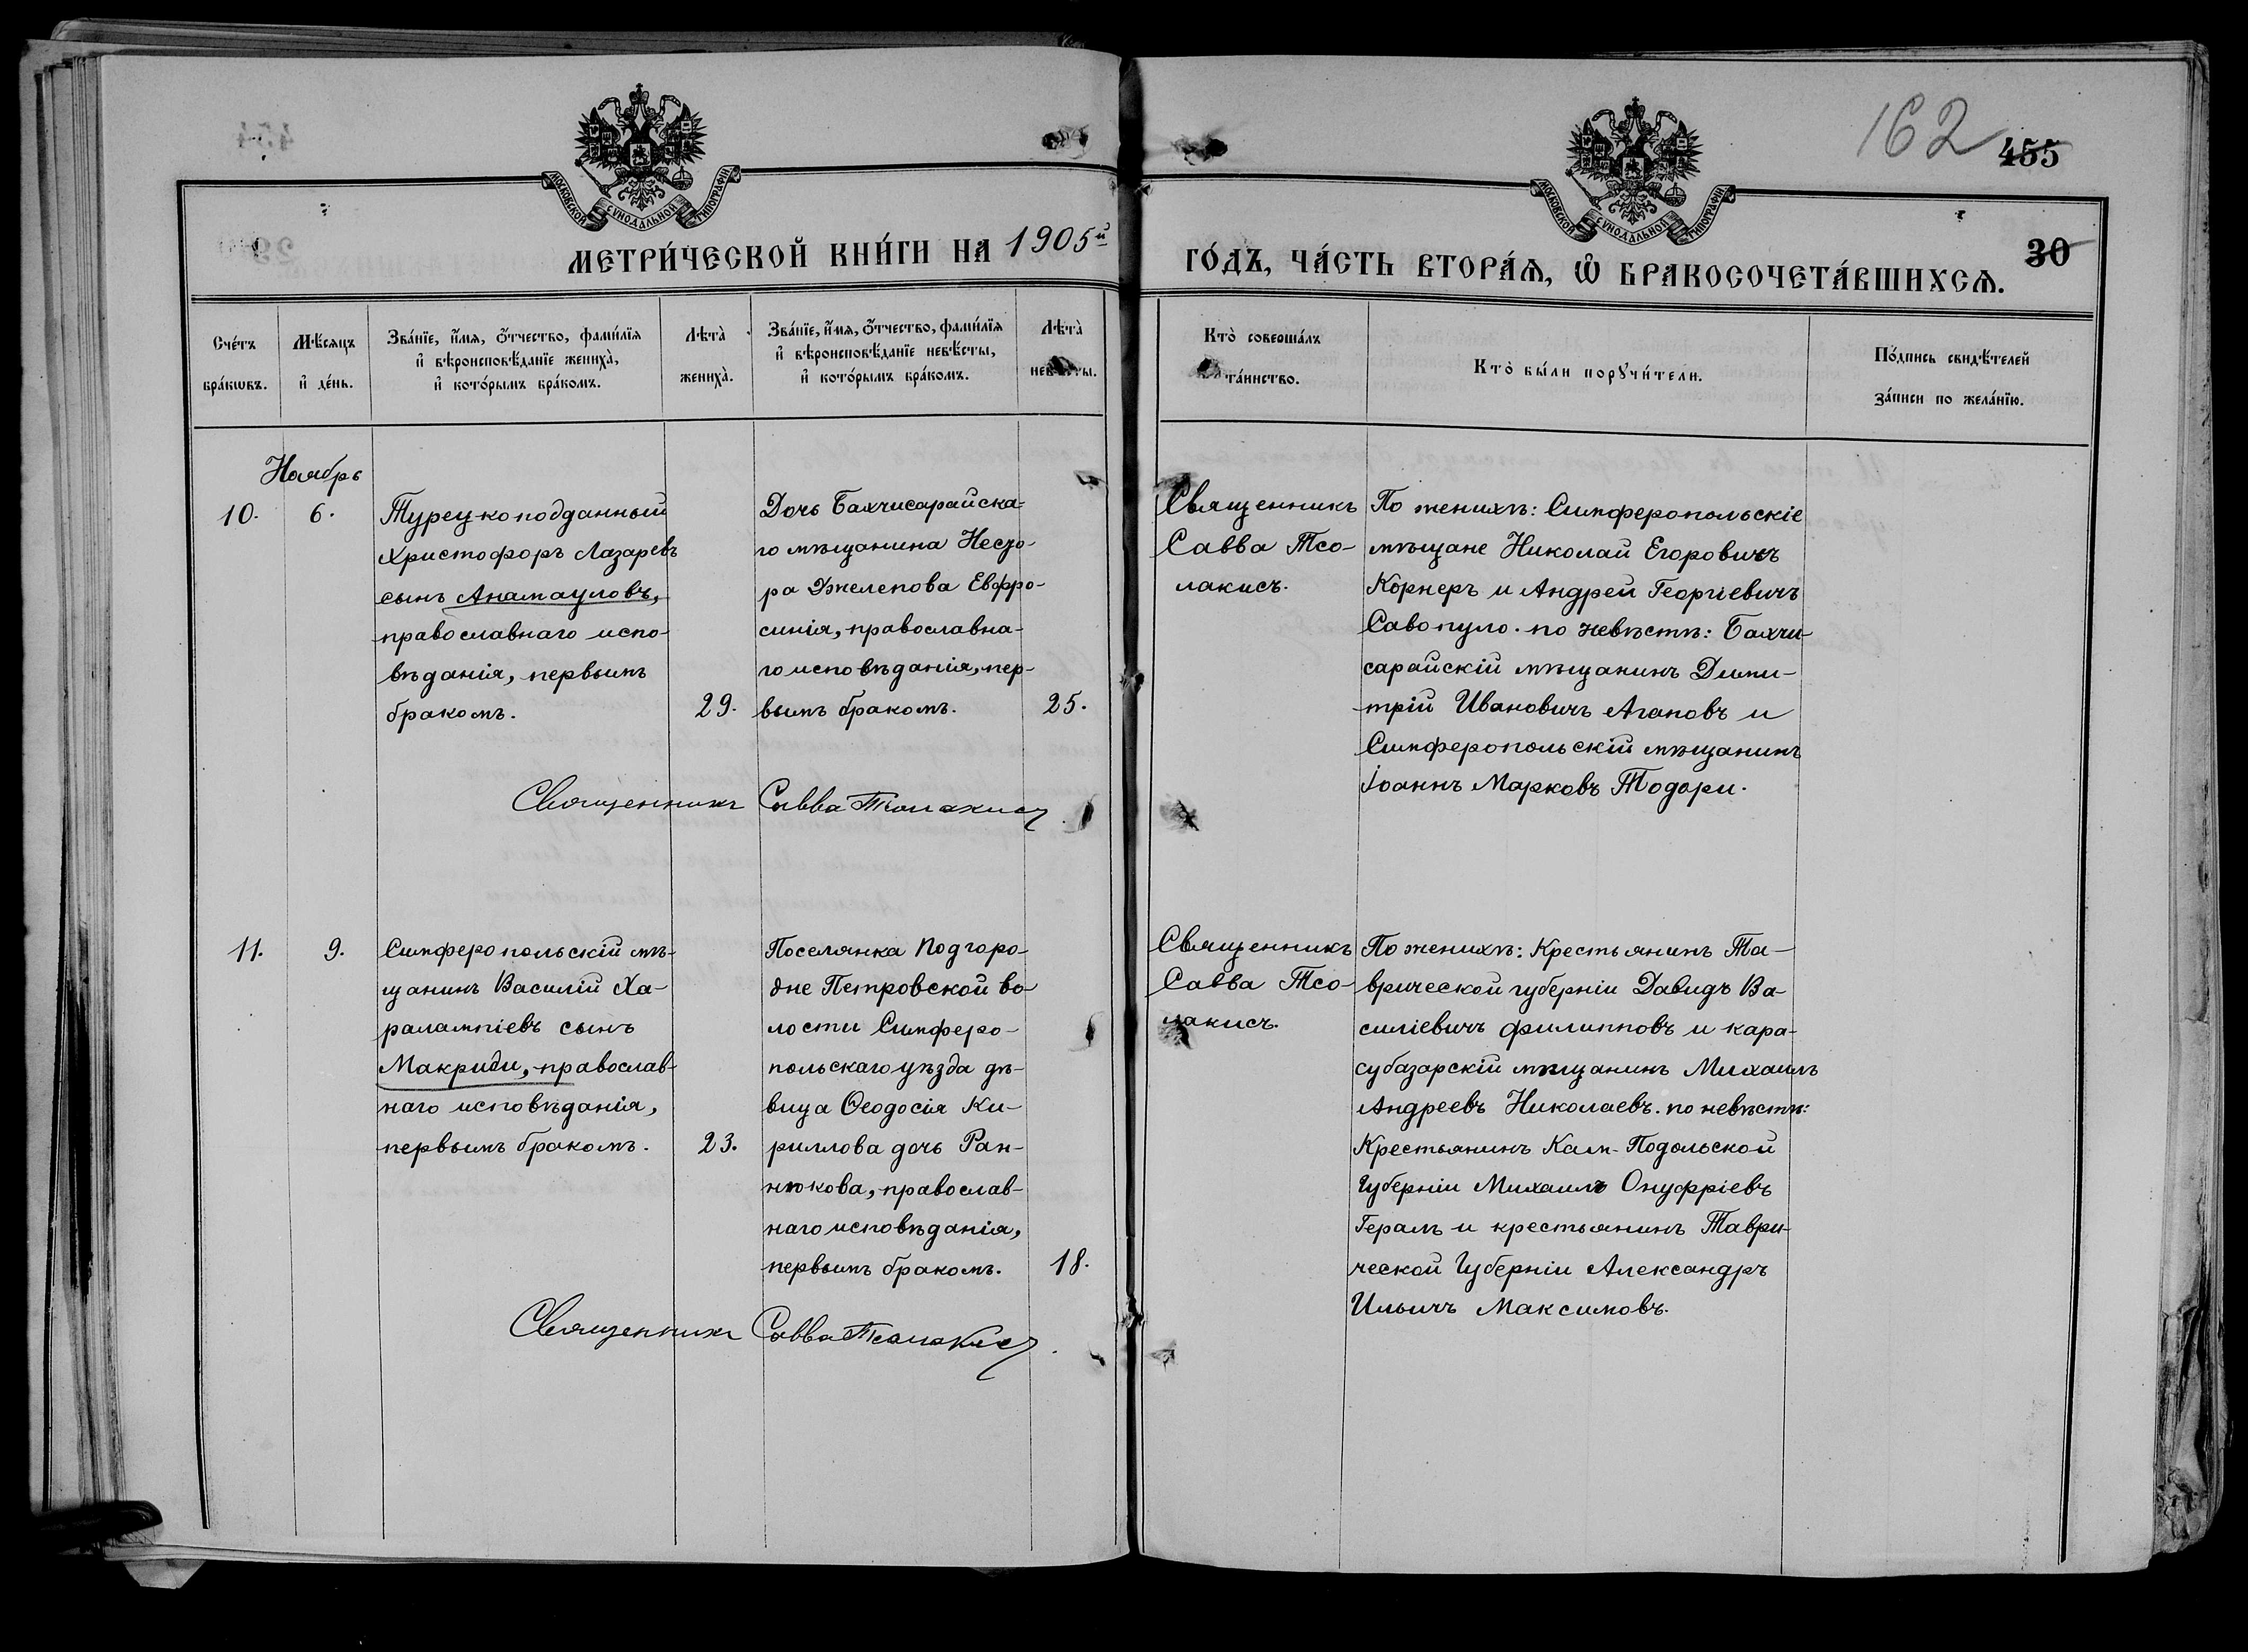 162
455
МОСКОВСКОЙ СѴНОДАЛЬНОЙ ТИПОГРАФІИ
МОСКОВСКОЙ СѴНОДАЛЬНОЙ ТИПОГРАФІИ
МЕТРИ́ЧЕСКОЙ КНИ́ГИ НА 1905й
ГО́ДЪ, ЧА́СТЬ ВТОРА́Ѧ, Ѡ҆ БРАКОСОЧЕТА́ВШИХСѦ.
30
Сче́тъ
бра́кѡвъ.
Мѣ́сѧцъ
и҆ де́нь.
Зва́нїе, и҆́мѧ, ѻ҆́тчество, фами́лїѧ
и҆ вѣроисповѣ́данїе жениха̀,
и҆ кото́рымъ бра́комъ.
Лѣта̀
жениха̀.
Зва́нїе, и҆́мѧ, ѻ҆́тчество, фами́лїѧ
и҆ вѣроисповѣ́данїе невѣ́сты,
и҆ кото́рымъ бра́комъ.
Лѣта̀
невѣ́сты.
Кто̀ соверша́лъ
та́инство.
Кто̀ бы́ли порꙋчи́тели.
По́дпись свидѣ́телей
за́писи по жела́нїю.
Ноябрь
10.
6.
Турецкоподданный
Христофоръ Лазаревъ
сынъ Анамауловъ,
православнаго испо-
вѣданія, первымъ
бракомъ.
29.
Дочь Бахчисарайска-
го мѣщанина Несто-
ра Джелепова Евфро-
синія, православна-
го исповѣданія, пер-
вымъ бракомъ.
25.
Священникъ
Савва Тсо-
лакисъ.
По женихѣ: Симферопольскіе
мѣщане Николай Егоровичъ
Корнеръ и Андрей Георгіевичъ
Савопуло. по невѣстѣ: Бахчи-
сарайскій мѣщанинъ Дими-
трій Ивановичъ Агаповъ и
Симферопольскій мѣщанинъ
Іоаннъ Марковъ Тодори.
Священникъ Савва Тсолакисъ
11.
9.
Симферопольскій мѣ-
щанинъ Василій Ха-
ралампіевъ сынъ
Макриди, православ-
наго исповѣданія,
первымъ бракомъ.
23.
Поселянка Подгоро-
дне Петровской во-
лости Симферо-
польскаго уѣзда дѣ-
вица Ѳеодосія Ки-
риллова дочь Ран-
нюкова, православ-
наго исповѣданія,
первымъ бракомъ.
18.
Священникъ
Савва Тсо-
лакисъ.
По женихѣ: Крестьянинъ Та-
врической губерніи Давидъ Ва-
силіевичъ Филипповъ и кара-
субазарскій мѣщанинъ Михаилъ
Андреевъ Николаевъ. по невѣстѣ:
Крестьянинъ Кам-Подольской
Губерніи Михаилъ Онуфріевъ
Гералъ и крестьянинъ Таври-
ческой Губерніи Александръ
Ильичъ Максимовъ.
Священникъ Савва Тсолакисъ